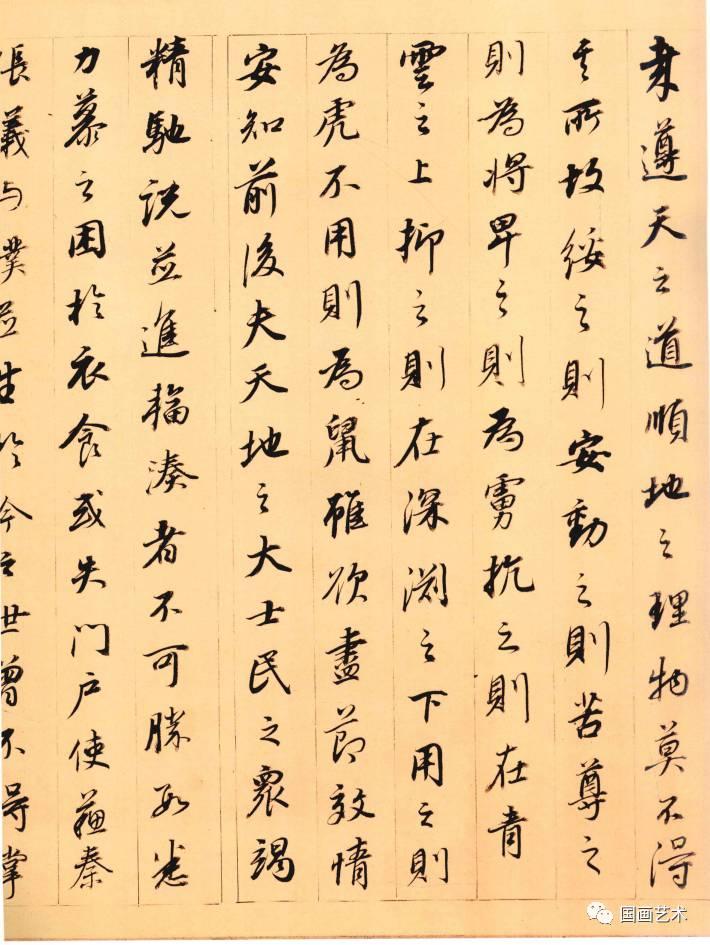 遵天之道順地之理物莫不得
其所故綏之則安動之則苦尊之
則為將卑之則為虜抗之則在青
雲之上抑之則在深淵之下用之則
為虎不用則為鼠雖欲盡節效情
安知前後夫天地之大士民之衆竭
精馳說並進輻湊者不可勝數悉
力慕之困於衣食或失門戶使蘇秦
張儀與僕並生於今之世曾不得掌
国画艺术